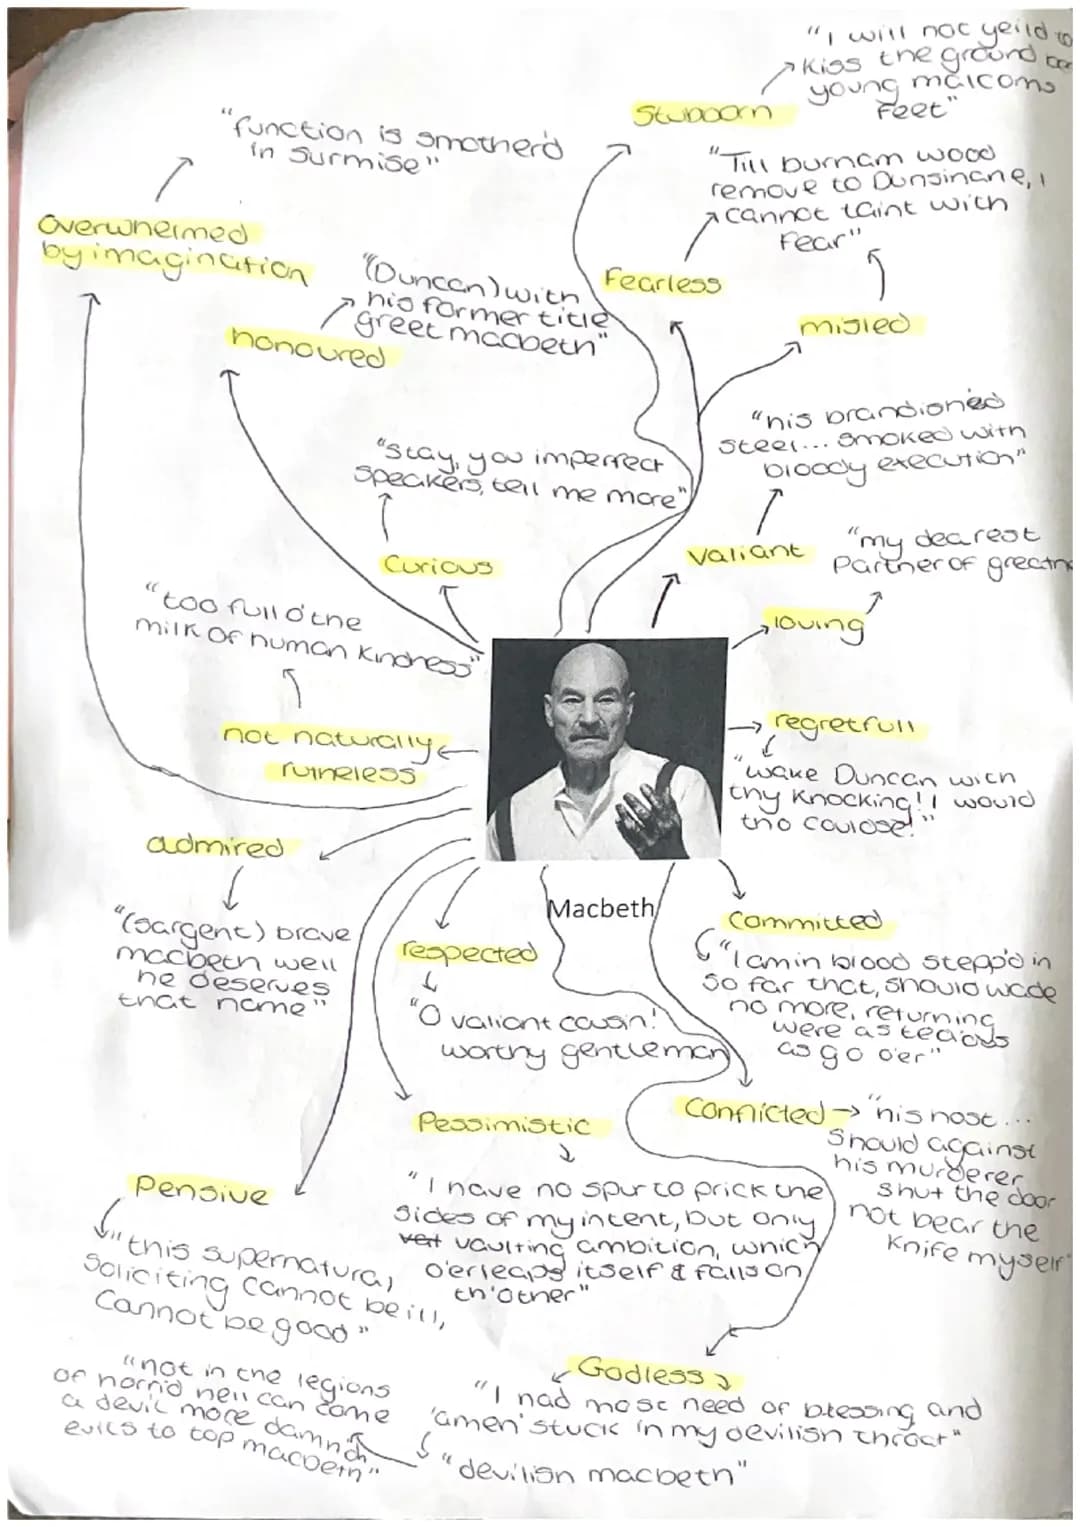 "I will not yeild to
Kiss the ground
young malcoms
Feet"
Stubborn
"function is smother'd
in surmise"
"Till burnam wood
remove to Dunsinane, I
cannot taint with
Fear"
Overwhelmed
by imagination
Fearless
misled
"(Duncan) with
his former title
greet macbeth"
honoured
"his brandished
steel... smoked with
bloody execution"
"stay, you imperfect
speakers, tell me more"
Curious
valiant
"my dearest
Partner of greatn
loving
"too full o'the
milk of human kindness"
not naturally
rutheless
regretfull
"wake Duncan with
thy knocking! I would
tho couldst!"
admired
"(sargent) brave
macbeth well
he deserves
that name"
Macbeth
respected
"O valiant cousin!
worthy gentleman
Committed
"I am in blood stepp'd in
so far that, should wade
no more, returning
were as tedious
as go o'er"
Conflicted
"his host...
Should against
his murderer
shut the door
not bear the
knife myself"
Pessimistic
"I have no spur to prick the
sides of my intent, but only
vaulting ambition, which
o'erleaps itself & falls on
th'other"
Pensive
"this supernatural
soliciting cannot be ill,
Cannot be good"
Godless
"I had most need of blessing and
'amen' stuck in my devilish throat"
"devilish macbeth"
"not in the legions
of horrid hell can come
a devil more damn'd
evils to top macbeth"